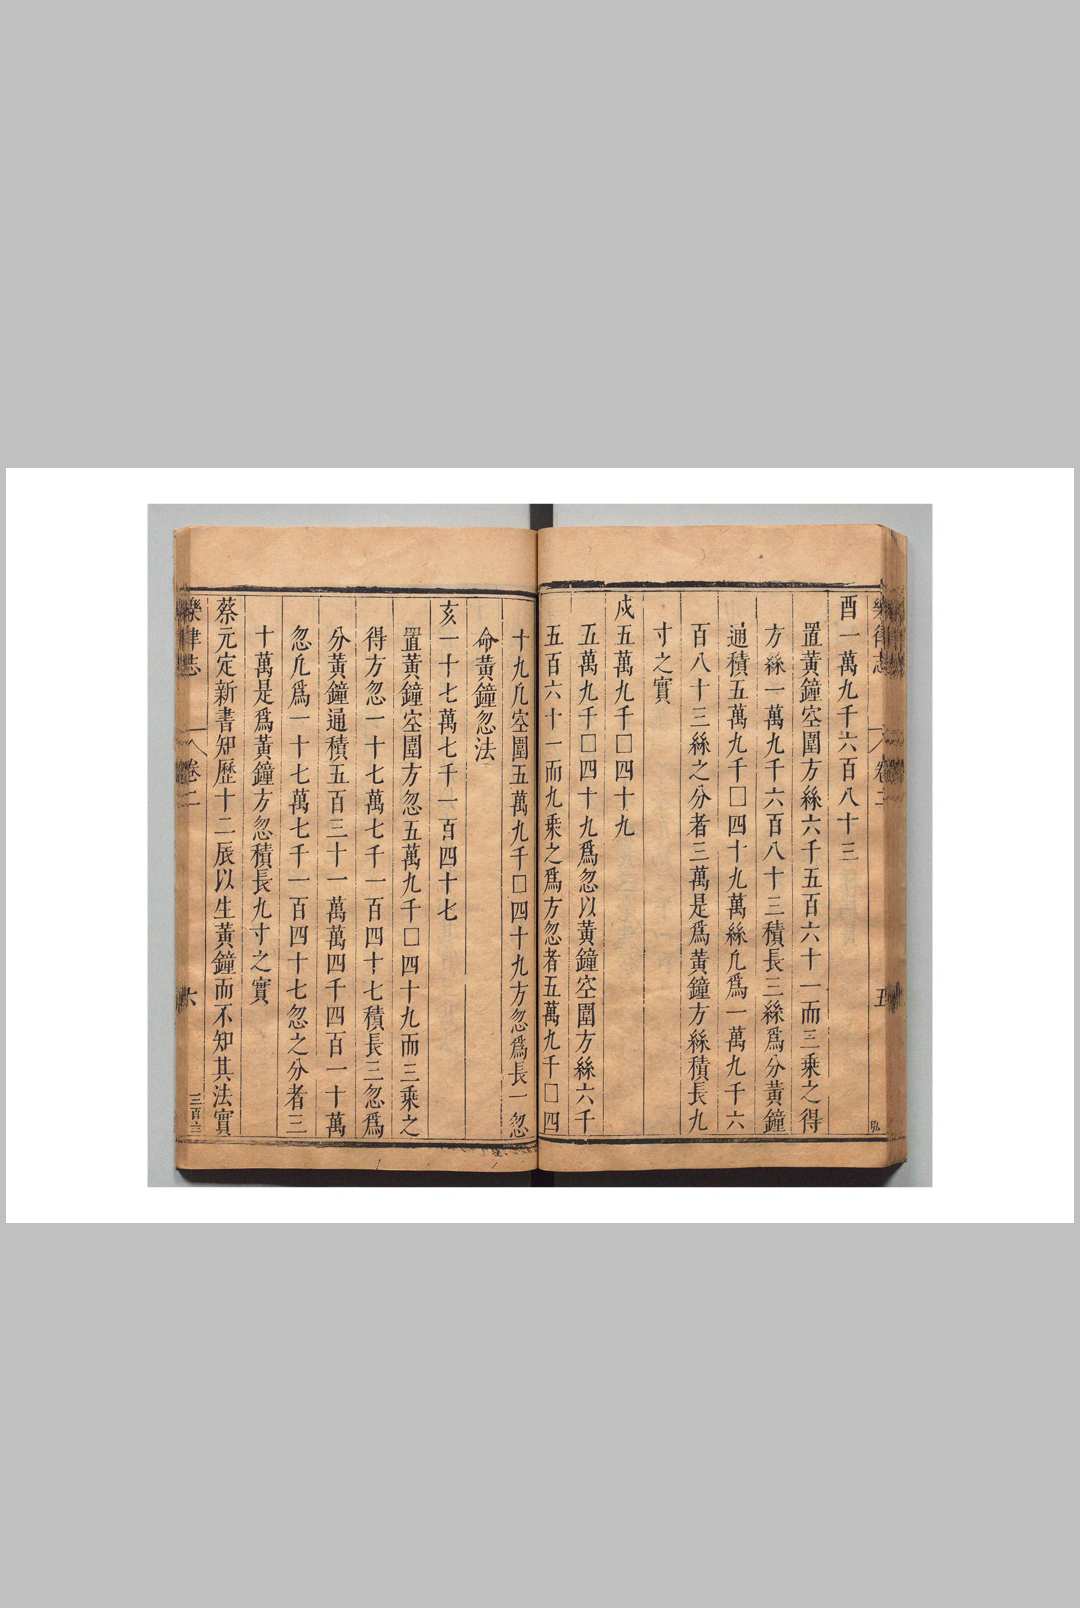 樂律志 卷二 五
酉一萬九千六百八十三
置黃鐘空圍方絲六千五百六十一而三乘之得
方絲一萬九千六百八十三積長三絲爲分黃鐘
通積五萬九千□四十九萬絲凡爲一萬九千六
百八十三絲之分者三萬是爲黃鐘方絲積長九
寸之實
戍五萬九千□四十九
五萬九千□四十九爲忽以黃鐘空圍方絲六千
五百六十一而九乘之爲方忽者五萬九千□四
十九凡空圍五萬九千□四十九方忽爲長一忽
命黃鐘忽法
亥一十七萬七千一百四十七
置黃鐘空圍方忽五萬九千□四十九而三乘之
得方忽一十七萬七千一百四十七積長三忽爲
分黃鐘通積五百三十一萬萬四千四百一十萬
忽凡爲一十七萬七千一百四十七忽之分者三
十萬是爲黃鐘方忽積長九寸之實
蔡元定新書知歷十二辰以生黃鐘而不知其法實
樂律志 卷二 六